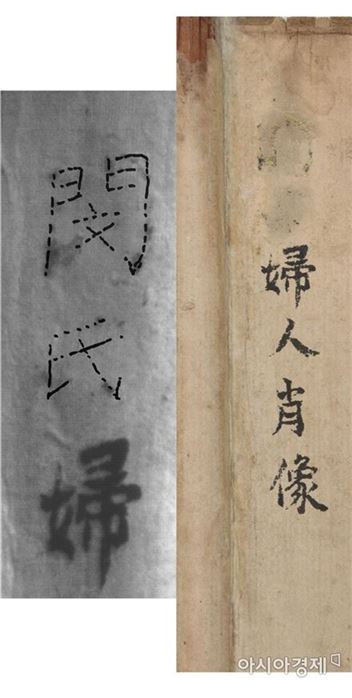 閔氏婦
婦人肖像
아시아경제